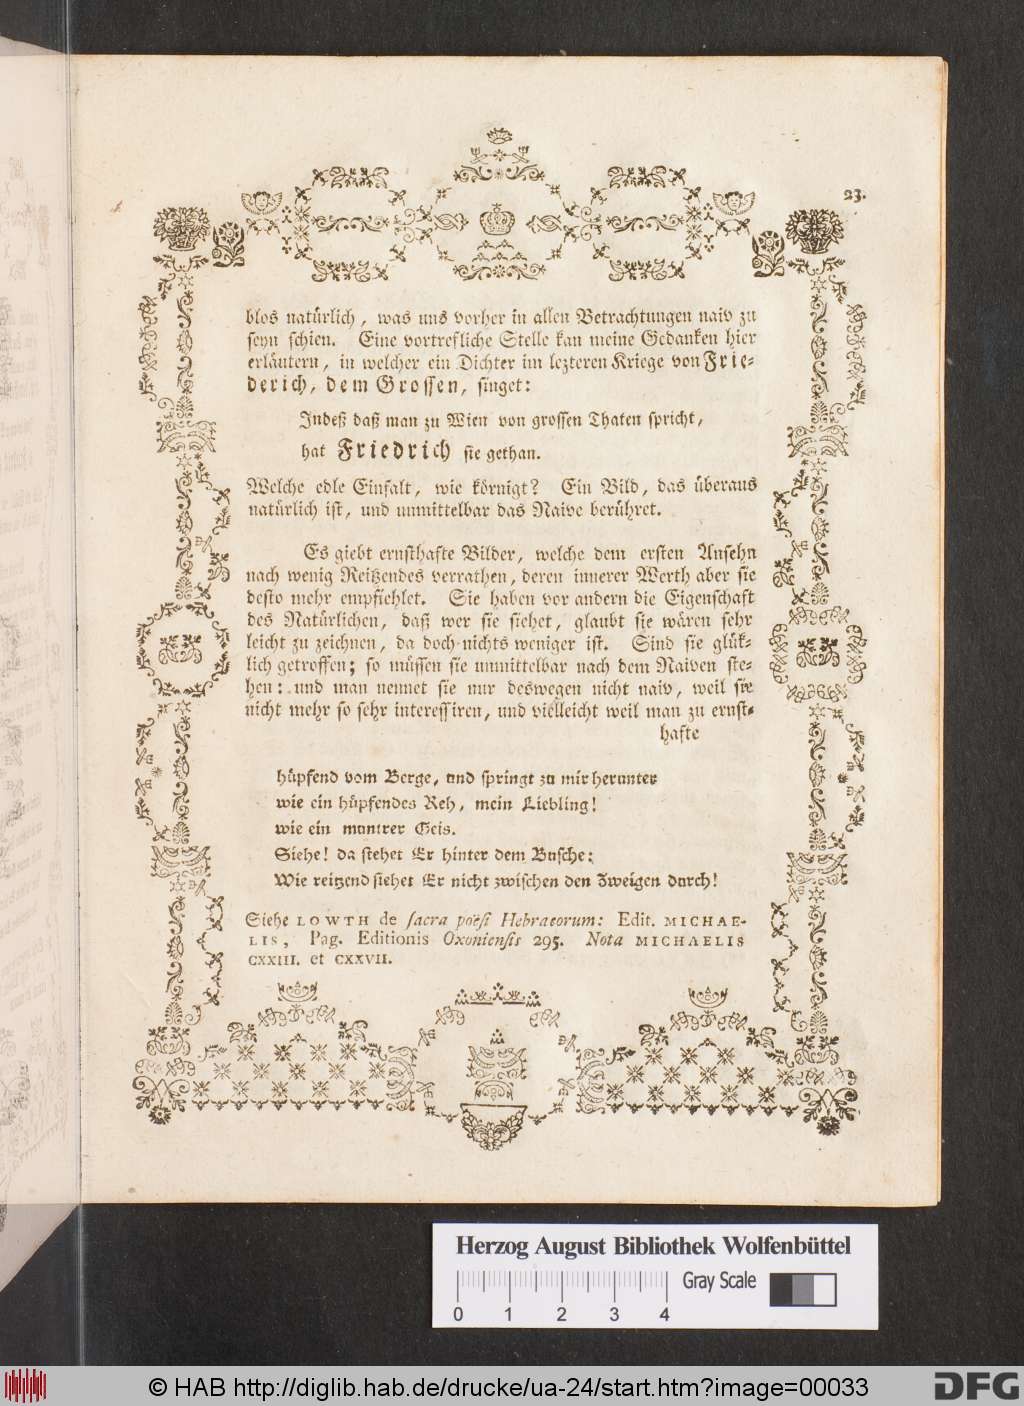 23.
blos natürlich, was uns vorher in allen Betrachtungen naiv zu
seyn schien. Eine vortrefliche Stelle kan meine Gedanken hier
erläutern, in welcher ein Dichter im lezteren Kriege von Frie-
derich, dem Grossen, singet:
Indeß daß man zu Wien von grossen Thaten spricht,
hat Friedrich sie gethan.
Welche edle Einfalt, wie körnigt? Ein Bild, das überaus
natürlich ist, und unmittelbar das Naive berühret.
Es giebt ernsthafte Bilder, welche dem ersten Ansehn
nach wenig Reitzendes verrathen, deren innerer Werth aber sie
desto mehr empfiehlet. Sie haben vor andern die Eigenschaft
des Natürlichen, daß wer sie siehet, glaubt sie wären sehr
leicht zu zeichnen, da doch nichts weniger ist. Sind sie glük-
lich getroffen; so müssen sie unmittelbar nach dem Naiven ste-
hen: und man nennet sie nur deswegen nicht naiv, weil sie
nicht mehr so sehr interessiren, und vielleicht weil man zu ernst-
hafte
hüpfend vom Berge, und springt zu mir herunter
wie ein hüpfendes Reh, mein Liebling!
wie ein muntrer Geis.
Siehe! da stehet Er hinter dem Busche:
Wie reitzend siehet Er nicht zwischen den Zweigen durch!
Siehe LOWTH de sacra poësi Hebraeorum: Edit. MICHAE-
LIS, Pag. Editionis Oxoniensis 295. Nota MICHAELIS
CXXIII. et CXXVII.
Herzog August Bibliothek Wolfenbüttel
Gray Scale
0 1 2 3 4
© HAB http://diglib.hab.de/drucke/ua-24/start.htm?image=00033
DFG